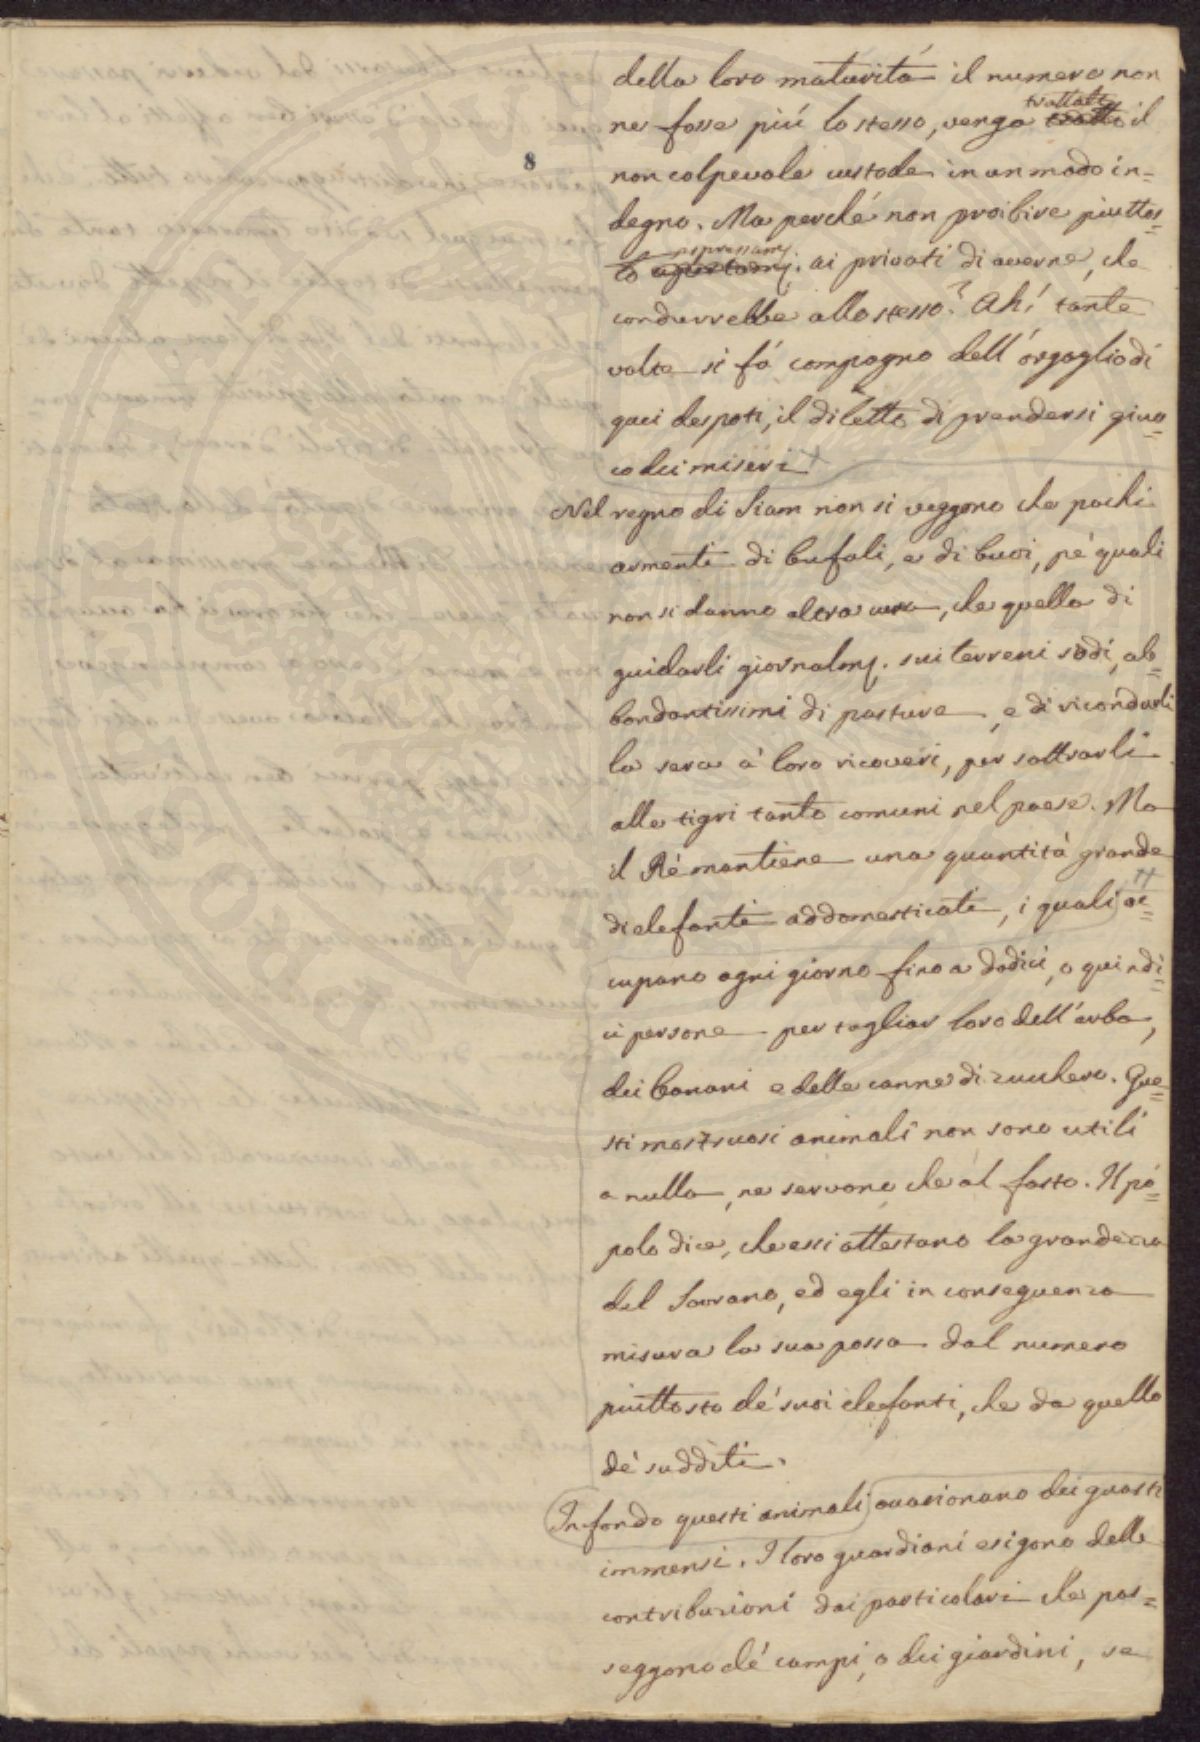 8
della loro maturitá il numero non
ne fosse piú lo stesso, venga trattato il
non colpevole custode in un modo in=
degno. Ma perché non proibire piuttos=
to espressamj. ai privati di averne, che
condurrebbe allo stesso? Ah! tante
volte si fá compagno dell'orgoglio di
quei despoti, il diletto di prendersi giuo=
co dei miseri
Nel regno di Siam non si veggono che pochi
armenti di bufali, e di buoi, pe' quali
non si danno altra cura, che quella di
guidarli giornalmj. sui terreni sodi, ab=
bondantissimi di pasture, e di ricondurli
la sera a' loro ricoveri, per sottrarli
alle tigri tanto comuni nel paese. Ma
il Ré mantiene una quantitá grande
di elefanti addomesticati, i quali oc=
cupano ogni giorno fino a dodici, o quindi=
ci persone per tagliar loro dell'erba,
dei banani e delle canne di zucchero. Que=
sti mostruosi animali non sono utili
a nulla, ne servono che al fasto. Il po=
polo dice, che essi attestano la grandezza
del Sovrano, ed egli in conseguenza
misura la sua possa dal numero
piuttosto de' suoi elefanti, che da quello
de' sudditi.
In fondo questi animali cagionano dei guasti
immensi. I loro guardiani esigono delle
contribuzioni dai particolari che pos=
seggono de' campi, o dei giardini, se